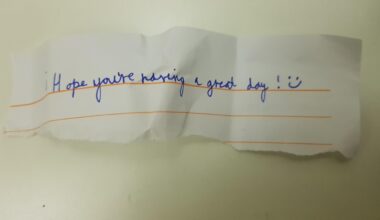 Hope you're having a great day! :)